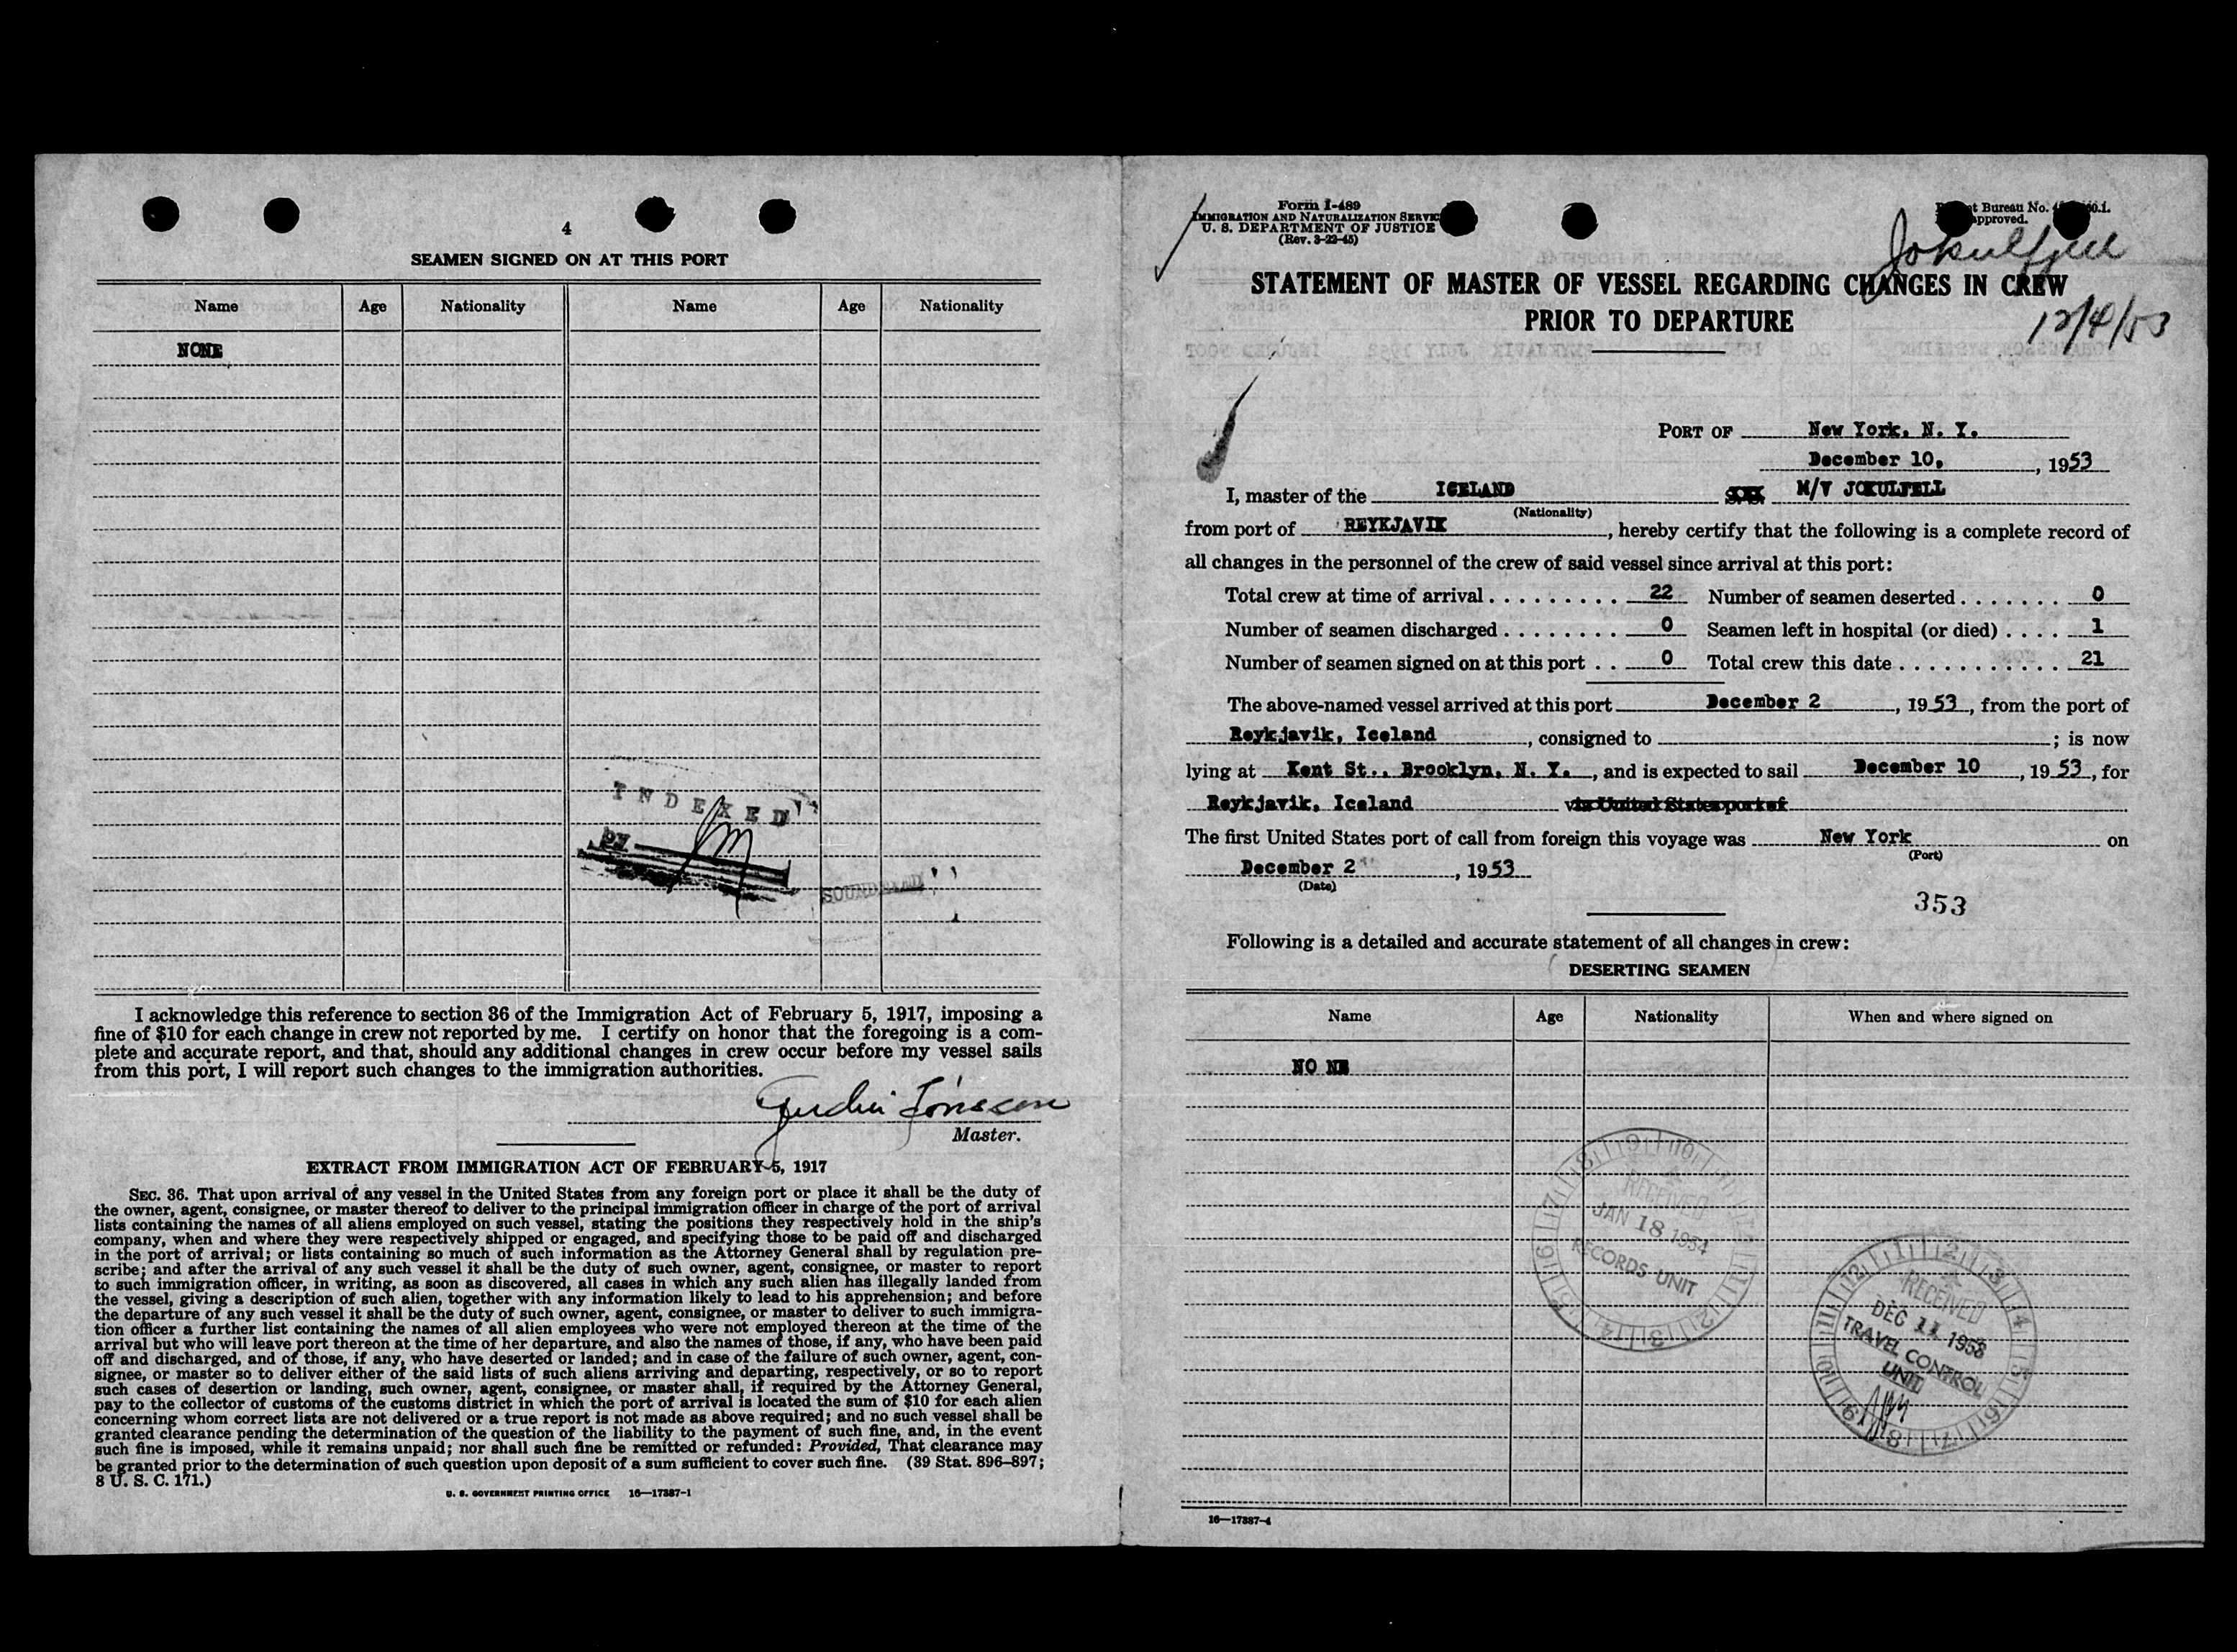 4
SEAMEN SIGNED ON AT THIS PORT
Name Age Nationality Name Age Nationality
NONE
INDEXED
by
I acknowledge this reference to section 36 of the Immigration Act of February 5, 1917, imposing a
fine of $10 for each change in crew not reported by me. I certify on honor that the foregoing is a com-
plete and accurate report, and that, should any additional changes in crew occur before my vessel sails
from this port, I will report such changes to the immigration authorities.
Jónsson
Master.
EXTRACT FROM IMMIGRATION ACT OF FEBRUARY 5, 1917
SEC. 36. That upon arrival of any vessel in the United States from any foreign port or place it shall be the duty of
the owner, agent, consignee, or master thereof to deliver to the principal immigration officer in charge of the port of arrival
lists containing the names of all aliens employed on such vessel, stating the positions they respectively hold in the ship's
company, when and where they were respectively shipped or engaged, and specifying those to be paid off and discharged
in the port of arrival; or lists containing so much of such information as the Attorney General shall by regulation pre-
scribe; and after the arrival of any such vessel it shall be the duty of such owner, agent, consignee, or master to report
to such immigration officer, in writing, as soon as discovered, all cases in which any such alien has illegally landed from
the vessel, giving a description of such alien, together with any information likely to lead to his apprehension; and before
the departure of any such vessel it shall be the duty of such owner, agent, consignee, or master to deliver to such immigra-
tion officer a further list containing the names of all alien employees who were not employed thereon at the time of the
arrival but who will leave port thereon at the time of her departure, and also the names of those, if any, who have been paid
off and discharged, and of those, if any, who have deserted or landed; and in case of the failure of such owner, agent, con-
signee, or master so to deliver either of the said lists of such aliens arriving and departing, respectively, or so to report
such cases of desertion or landing, such owner, agent, consignee, or master shall, if required by the Attorney General,
pay to the collector of customs of the customs district in which the port of arrival is located the sum of $10 for each alien
concerning whom correct lists are not delivered or a true report is not made as above required; and no such vessel shall be
granted clearance pending the determination of the question of the liability to the payment of such fine, and, in the event
such fine is imposed, while it remains unpaid; nor shall such fine be remitted or refunded: Provided, That clearance may
be granted prior to the determination of such question upon deposit of a sum sufficient to cover such fine. (39 Stat. 896–897;
8 U. S. C. 171.)
U. S. GOVERNMENT PRINTING OFFICE 16—17387-1
Form I-489
IMMIGRATION AND NATURALIZATION SERVICE
U. S. DEPARTMENT OF JUSTICE
(Rev. 3-22-45)
Bureau No.
approved.
Jokulfjell
12/4/53
STATEMENT OF MASTER OF VESSEL REGARDING CHANGES IN CREW
PRIOR TO DEPARTURE
PORT OF New York, N. Y.
December 10, , 1953
I, master of the ICELAND M/V JOKULFELL
(Nationality)
from port of REYKJAVIK, hereby certify that the following is a complete record of
all changes in the personnel of the crew of said vessel since arrival at this port:
Total crew at time of arrival . . . . . . . . . 22 Number of seamen deserted . . . . . . . 0
Number of seamen discharged . . . . . . . . 0 Seamen left in hospital (or died) . . . . 1
Number of seamen signed on at this port . . 0 Total crew this date . . . . . . . . . . . . 21
The above-named vessel arrived at this port December 2, 1953, from the port of
Reykjavik, Iceland, consigned to ; is now
lying at Kent St., Brooklyn, N. Y., and is expected to sail December 10, 1953, for
Reykjavik, Iceland via United States port of
The first United States port of call from foreign this voyage was New York on
(Port)
December 2, 1953
(Date)
353
Following is a detailed and accurate statement of all changes in crew:
DESERTING SEAMEN
Name Age Nationality When and where signed on
NO NE
RECEIVED
JAN 18 1954
RECORDS UNIT
RECEIVED
DEC 11 1953
TRAVEL CONTROL
UNIT
16—17387-4